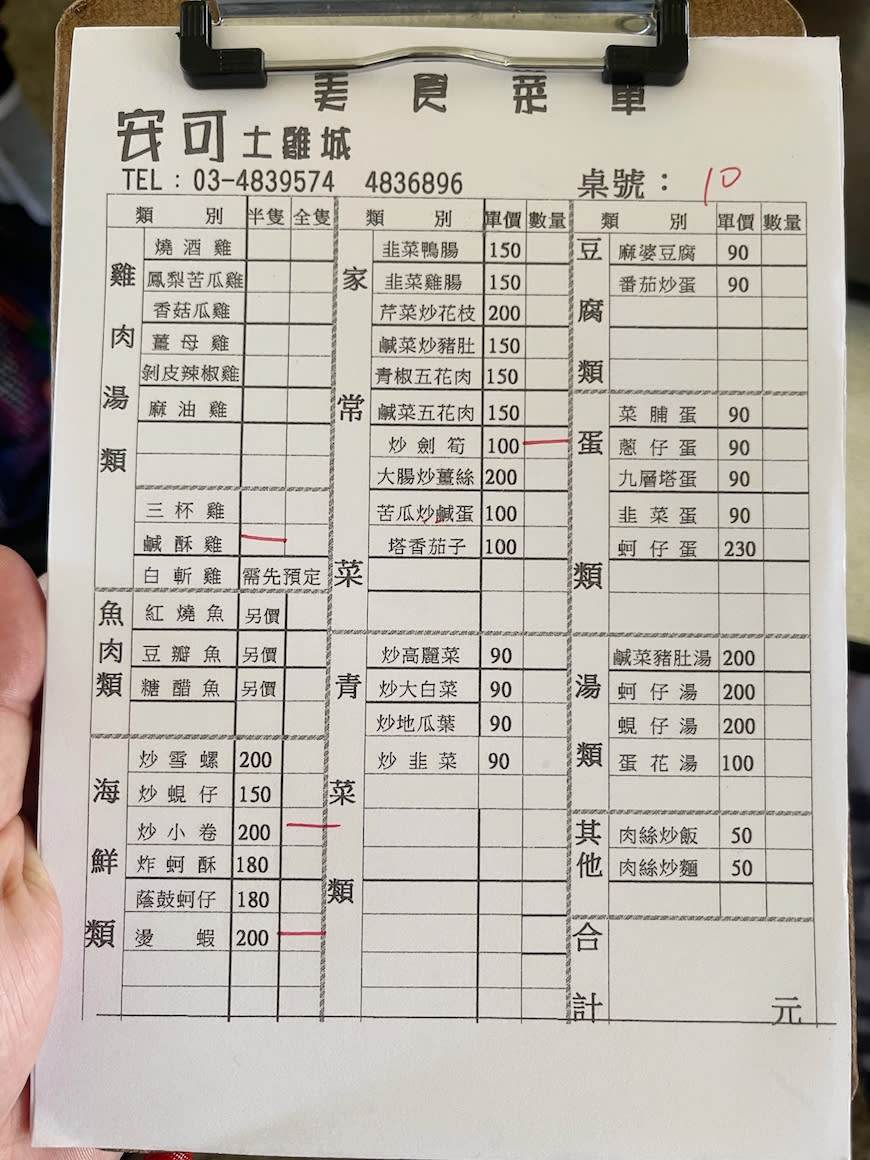 美食菜單
安可土雞城
TEL：03-4839574 4836896 桌號：10
類別 半隻 全隻
雞肉湯類
燒酒雞
鳳梨苦瓜雞
香菇瓜雞
薑母雞
剝皮辣椒雞
麻油雞
三杯雞
鹹酥雞 一
白斬雞 需先預定
魚肉類
紅燒魚 另價
豆瓣魚 另價
糖醋魚 另價
海鮮類
炒雪螺 200
炒蜆仔 150
炒小卷 200 一
炸蚵酥 180
蔭鼓蚵仔 180
燙蝦 200 一
類別 單價 數量
家常菜
韭菜鴨腸 150
韭菜雞腸 150
芹菜炒花枝 200
鹹菜炒豬肚 150
青椒五花肉 150
鹹菜五花肉 150
炒劍筍 100 一
大腸炒薑絲 200
苦瓜炒鹹蛋 100
塔香茄子 100
青菜類
炒高麗菜 90
炒大白菜 90
炒地瓜葉 90
炒韭菜 90
類別 單價 數量
豆腐類
麻婆豆腐 90
番茄炒蛋 90
蛋類
菜脯蛋 90
蔥仔蛋 90
九層塔蛋 90
韭菜蛋 90
蚵仔蛋 230
湯類
鹹菜豬肚湯 200
蚵仔湯 200
蜆仔湯 200
蛋花湯 100
其他
肉絲炒飯 50
肉絲炒麵 50
合計 元